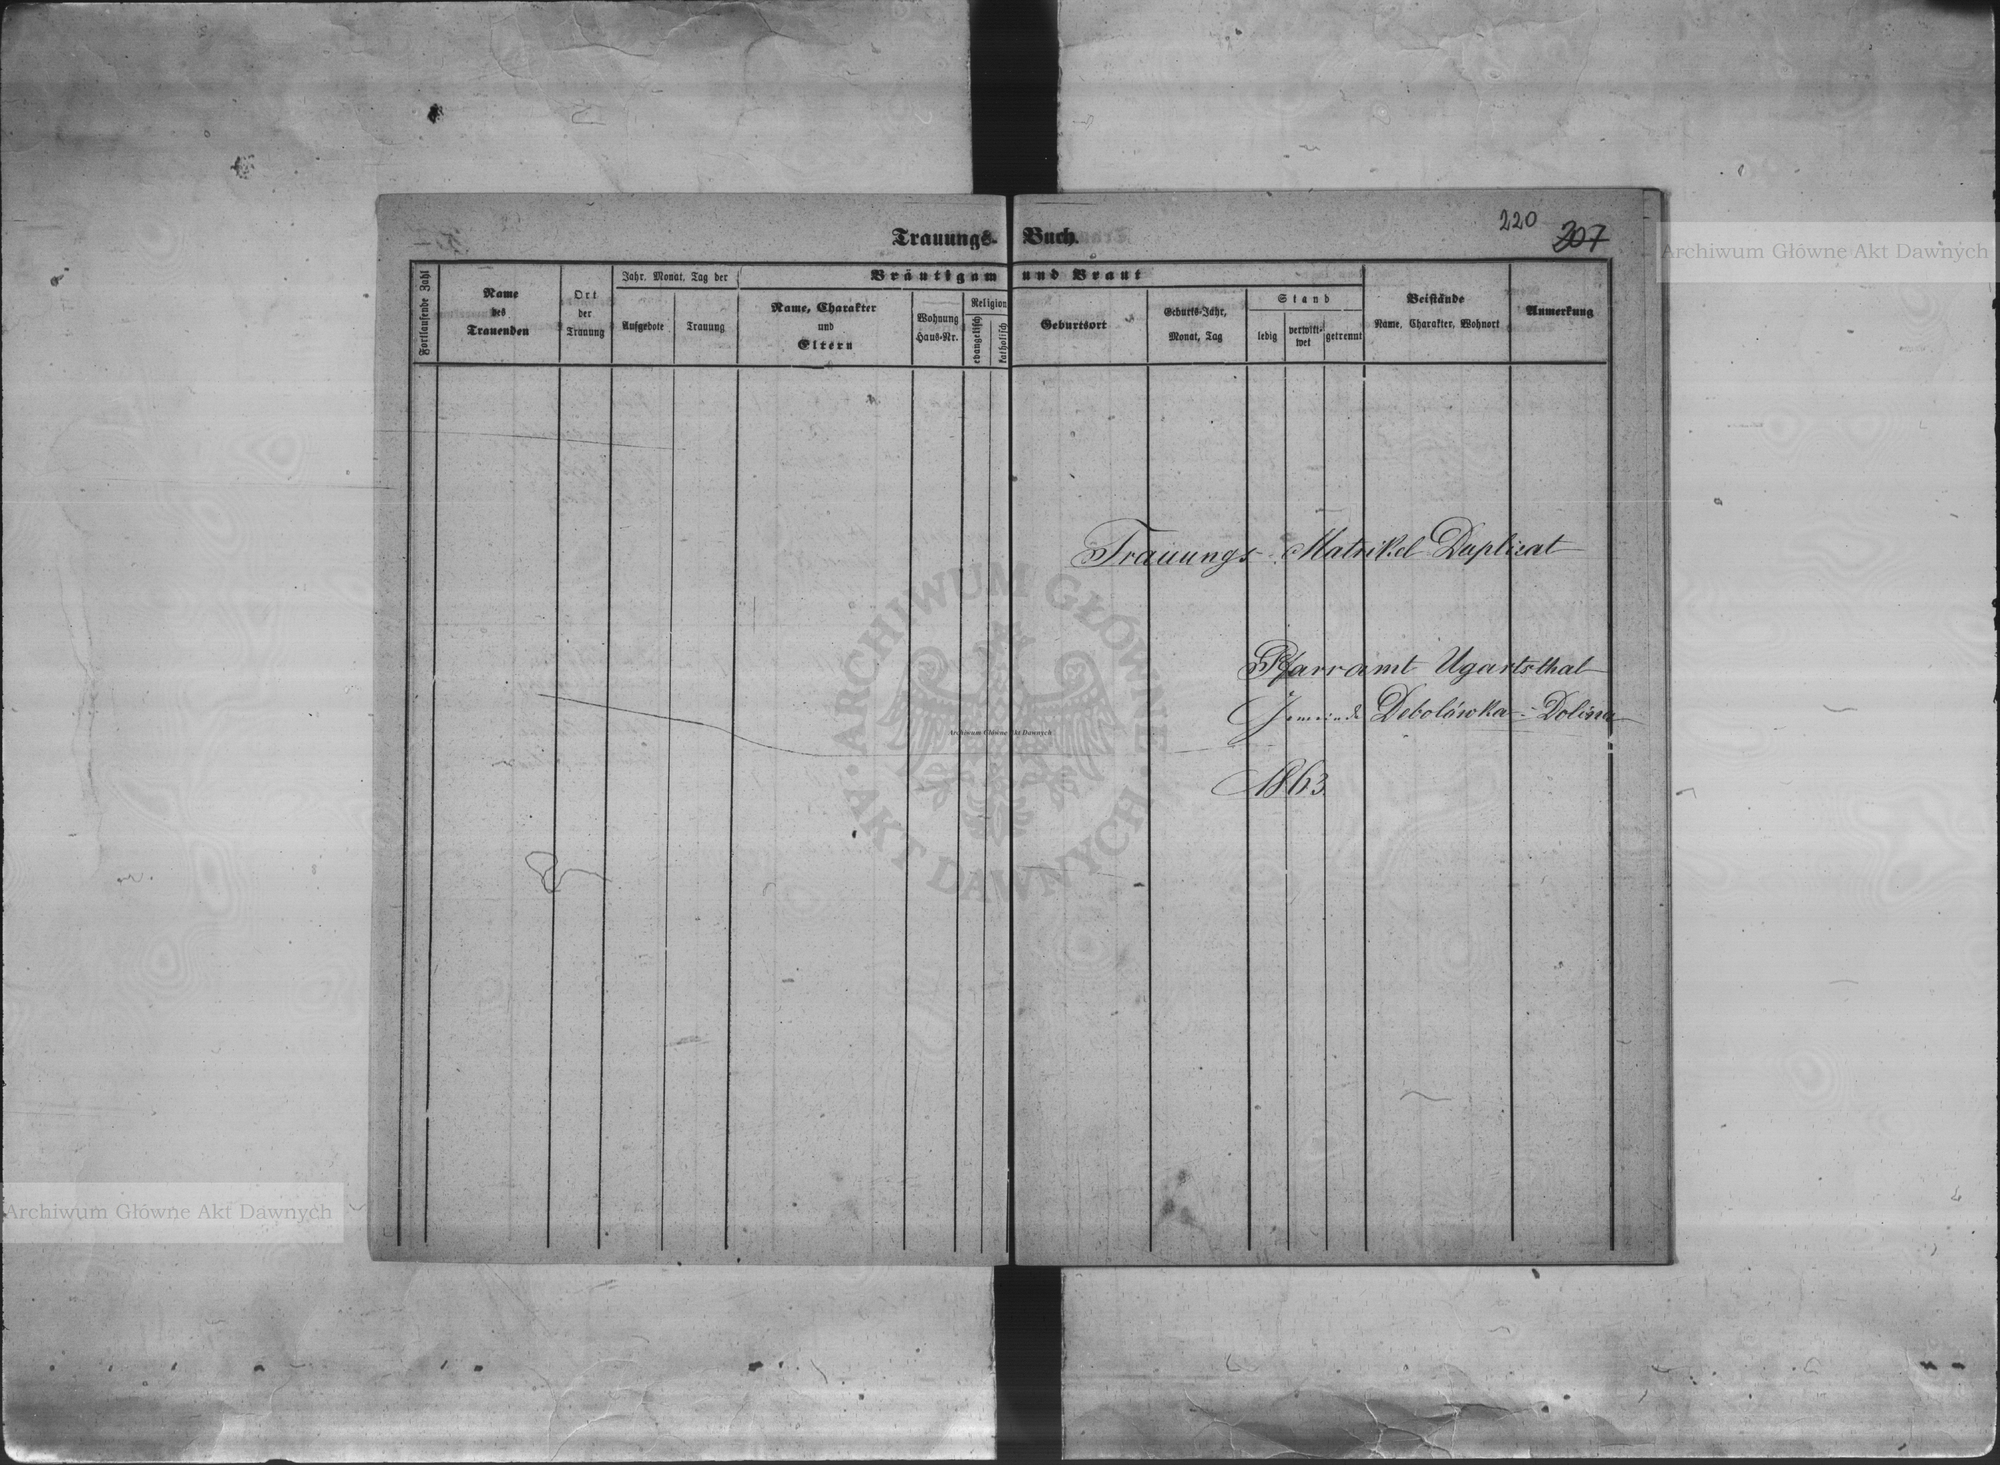 220 207
Trauungs-Buch.
Fortlaufende Zahl
Name
des
Trauenden
Ort
der
Trauung
Jahr, Monat, Tag der
Aufgebote
Trauung
Bräutigam und Braut
Name, Charakter
und
Eltern
Wohnung
Haus-Nr.
Religion
evangelisch
katholisch
Geburtsort
Geburts-Jahr,
Monat, Tag
Stand
ledig
verwitt-
wet
getrennt
Beistände
Name, Charakter, Wohnort
Anmerkung
Trauungs Matrikel Duplicat
Pfarramt Ugartsthal
Gemeinde Debolówka - Dolina
1863
Archiwum Główne Akt Dawnych
Archiwum Główne Akt Dawnych
Archiwum Główne Akt Dawnych
ARCHIWUM GŁÓWNE AKT DAWNYCH